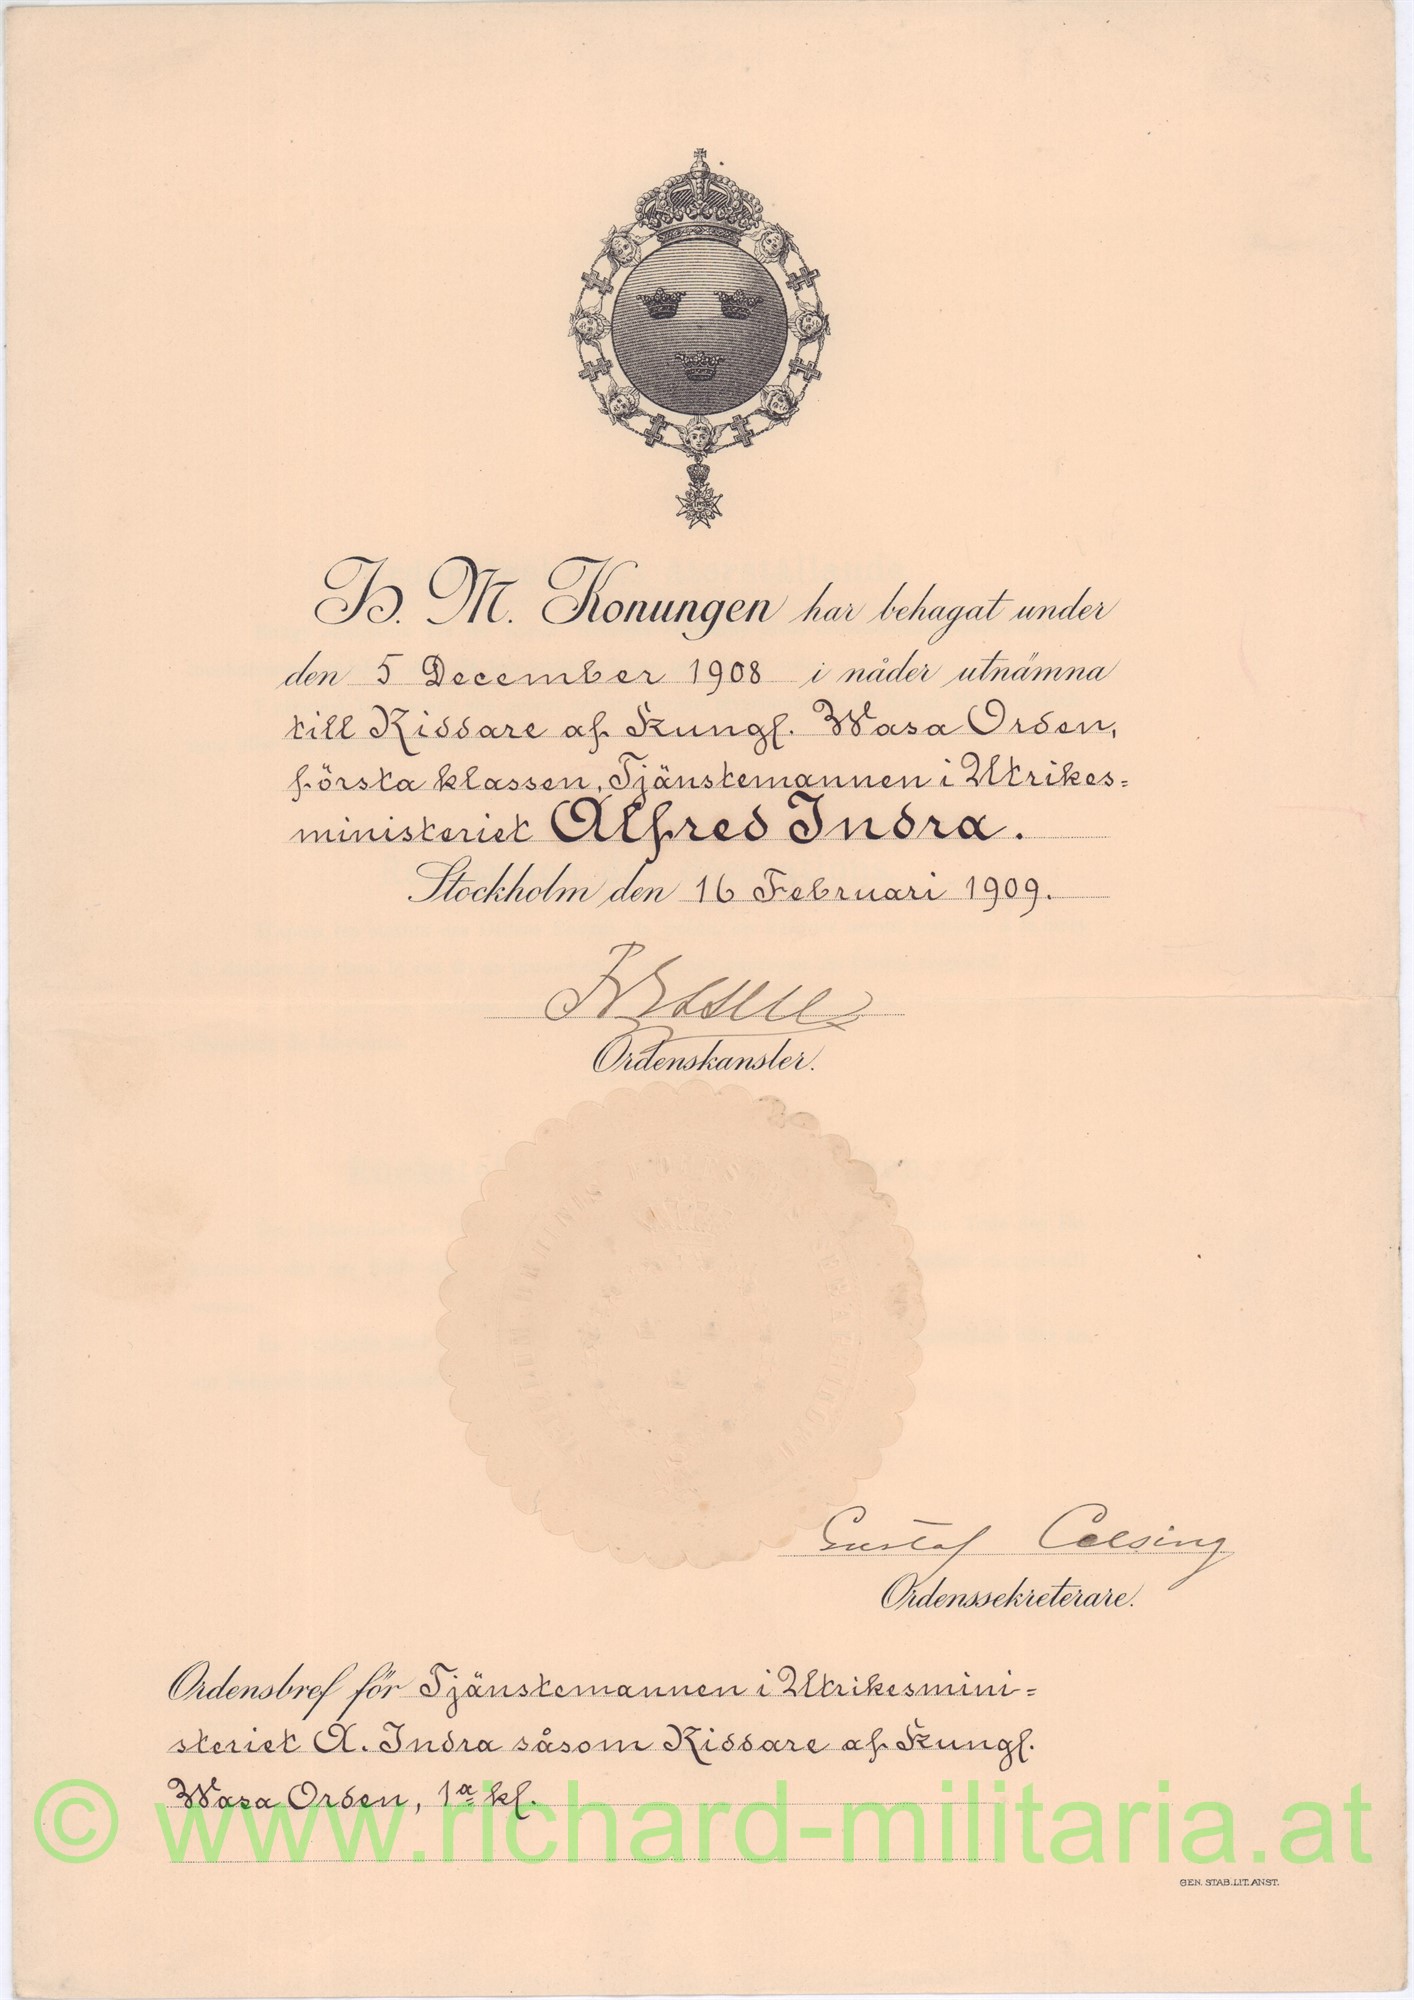 H. M. Konungen har behagat under
den 5 December 1908 i nåder utnämna
till Riddare af Kungl. Wasa Orden,
första klassen, Tjänstemannen i Utrikes=
ministeriet Alfred Indra.
Stockholm den 16 Februari 1909.
Ordenskansler.
Gustaf Celsing
Ordenssekreterare.
Ordensbref för Tjänstemannen i Utrikesmini=
steriet A. Indra såsom Riddare af Kungl.
Wasa Orden, 1a kl.
© www.richard-militaria.at
GEN. STAB. LIT. ANST.